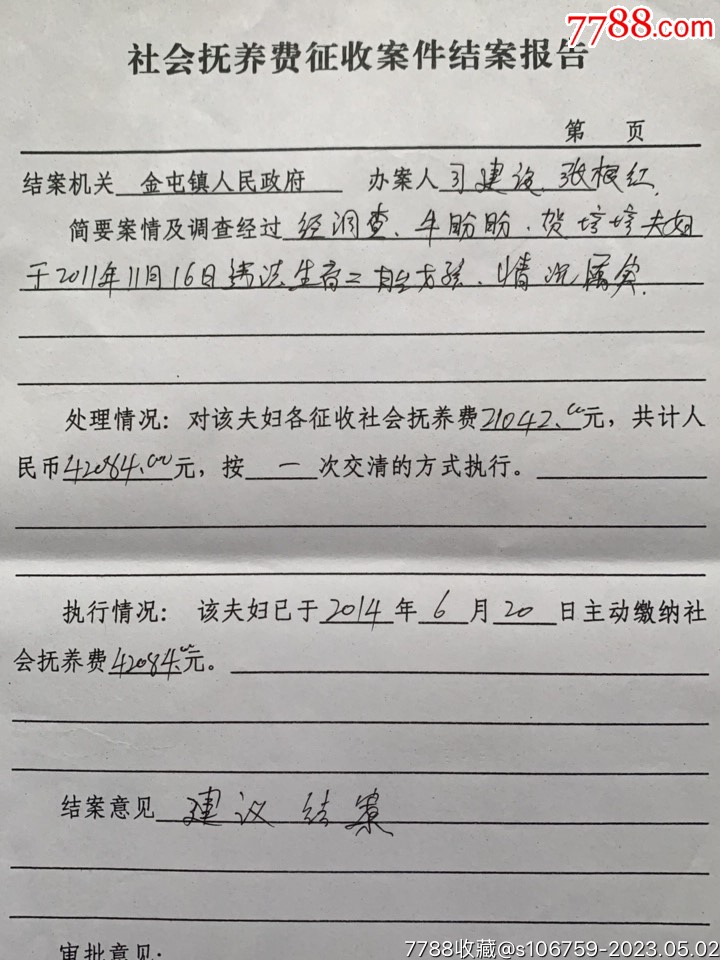 7788.com
社会抚养费征收案件结案报告
第 页
结案机关 金屯镇人民政府 办案人 司建设、张根红
简要案情及调查经过 经调查、牛盼盼、贺培培夫妇
于2011年11月16日违法生育二胎男孩、情况属实.
处理情况：对该夫妇各征收社会抚养费21042.00元，共计人
民币42084.00元，按 一 次交清的方式执行。
执行情况： 该夫妇已于 2014 年 6 月 20 日主动缴纳社
会抚养费42084.00元。
结案意见 建议结案
审批意见：
7788收藏@s106759-2023.05.02